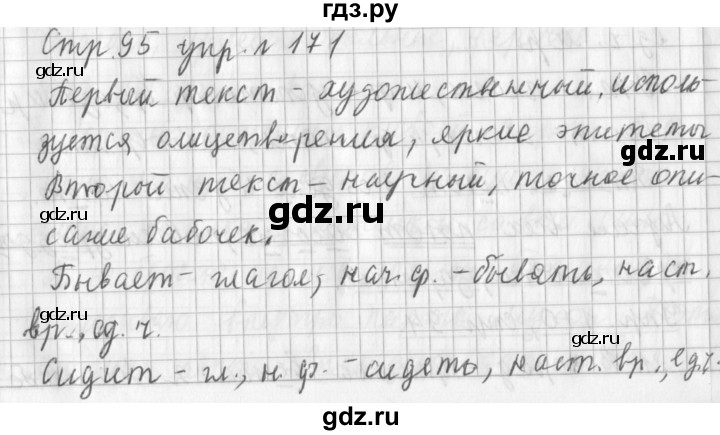 гдз.ру
Стр. 95 упр. № 171
Первый текст - художественный, исполь-
зуется олицетворения, яркие эпитеты
gdz.ru
Второй текст - научный, точное опи-
gdz.ru
сание бабочек.
Бывает - глагол, нач. ф. - бывать, наст.
вр., ед. ч.
gdz.ru
gdz.ru
Сидит - гл., н. ф. - сидеть, наст. вр., ед. ч.
gdz.ru